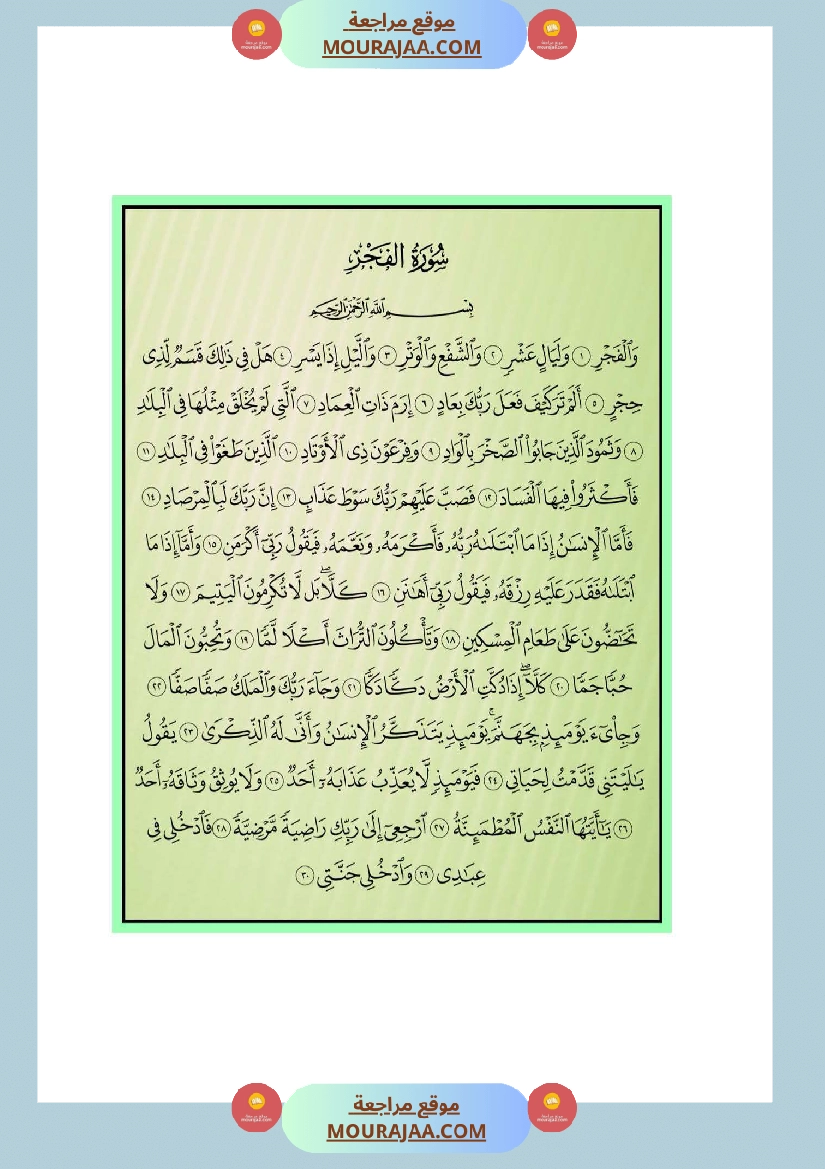 موقع مراجعة
MOURAJAA.COM
سُورَةُ الفَجْرِ
بِسْمِ ٱللَّهِ ٱلرَّحْمَٰنِ ٱلرَّحِيمِ
وَٱلْفَجْرِ ١ وَلَيَالٍ عَشْرٍ ٢ وَٱلشَّفْعِ وَٱلْوَتْرِ ٣ وَٱلَّيْلِ إِذَا يَسْرِ ٤ هَلْ فِى ذَٰلِكَ قَسَمٌ لِّذِى
حِجْرٍ ٥ أَلَمْ تَرَ كَيْفَ فَعَلَ رَبُّكَ بِعَادٍ ٦ إِرَمَ ذَاتِ ٱلْعِمَادِ ٧ ٱلَّتِى لَمْ يُخْلَقْ مِثْلُهَا فِى ٱلْبِلَٰدِ
٨ وَثَمُودَ ٱلَّذِينَ جَابُوا۟ ٱلصَّخْرَ بِٱلْوَادِ ٩ وَفِرْعَوْنَ ذِى ٱلْأَوْتَادِ ١٠ ٱلَّذِينَ طَغَوْا۟ فِى ٱلْبِلَٰدِ ١١
فَأَكْثَرُوا۟ فِيهَا ٱلْفَسَادَ ١٢ فَصَبَّ عَلَيْهِمْ رَبُّكَ سَوْطَ عَذَابٍ ١٣ إِنَّ رَبَّكَ لَبِٱلْمِرْصَادِ ١٤
فَأَمَّا ٱلْإِنسَٰنُ إِذَا مَا ٱبْتَلَىٰهُ رَبُّهُۥ فَأَكْرَمَهُۥ وَنَعَّمَهُۥ فَيَقُولُ رَبِّىٓ أَكْرَمَنِ ١٥ وَأَمَّآ إِذَا مَا
ٱبْتَلَىٰهُ فَقَدَرَ عَلَيْهِ رِزْقَهُۥ فَيَقُولُ رَبِّىٓ أَهَٰنَنِ ١٦ كَلَّا ۖ بَل لَّا تُكْرِمُونَ ٱلْيَتِيمَ ١٧ وَلَا
تَحَٰٓضُّونَ عَلَىٰ طَعَامِ ٱلْمِسْكِينِ ١٨ وَتَأْكُلُونَ ٱلتُّرَاثَ أَكْلًا لَّمًّا ١٩ وَتُحِبُّونَ ٱلْمَالَ
حُبًّا جَمًّا ٢٠ كَلَّآ ۖ إِذَا دُكَّتِ ٱلْأَرْضُ دَكًّا دَكًّا ٢١ وَجَآءَ رَبُّكَ وَٱلْمَلَكُ صَفًّا صَفًّا ٢٢
وَجِا۟ىٓءَ يَوْمَئِذٍۭ بِجَهَنَّمَ ۚ يَوْمَئِذٍ يَتَذَكَّرُ ٱلْإِنسَٰنُ وَأَنَّىٰ لَهُ ٱلذِّكْرَىٰ ٢٣ يَقُولُ
يَٰلَيْتَنِى قَدَّمْتُ لِحَيَاتِى ٢٤ فَيَوْمَئِذٍ لَّا يُعَذِّبُ عَذَابَهُۥٓ أَحَدٌ ٢٥ وَلَا يُوثِقُ وَثَاقَهُۥٓ أَحَدٌ
٢٦ يَٰٓأَيَّتُهَا ٱلنَّفْسُ ٱلْمُطْمَئِنَّةُ ٢٧ ٱرْجِعِىٓ إِلَىٰ رَبِّكِ رَاضِيَةً مَّرْضِيَّةً ٢٨ فَٱدْخُلِى فِى
عِبَٰدِى ٢٩ وَٱدْخُلِى جَنَّتِى ٣٠
موقع مراجعة
MOURAJAA.COM